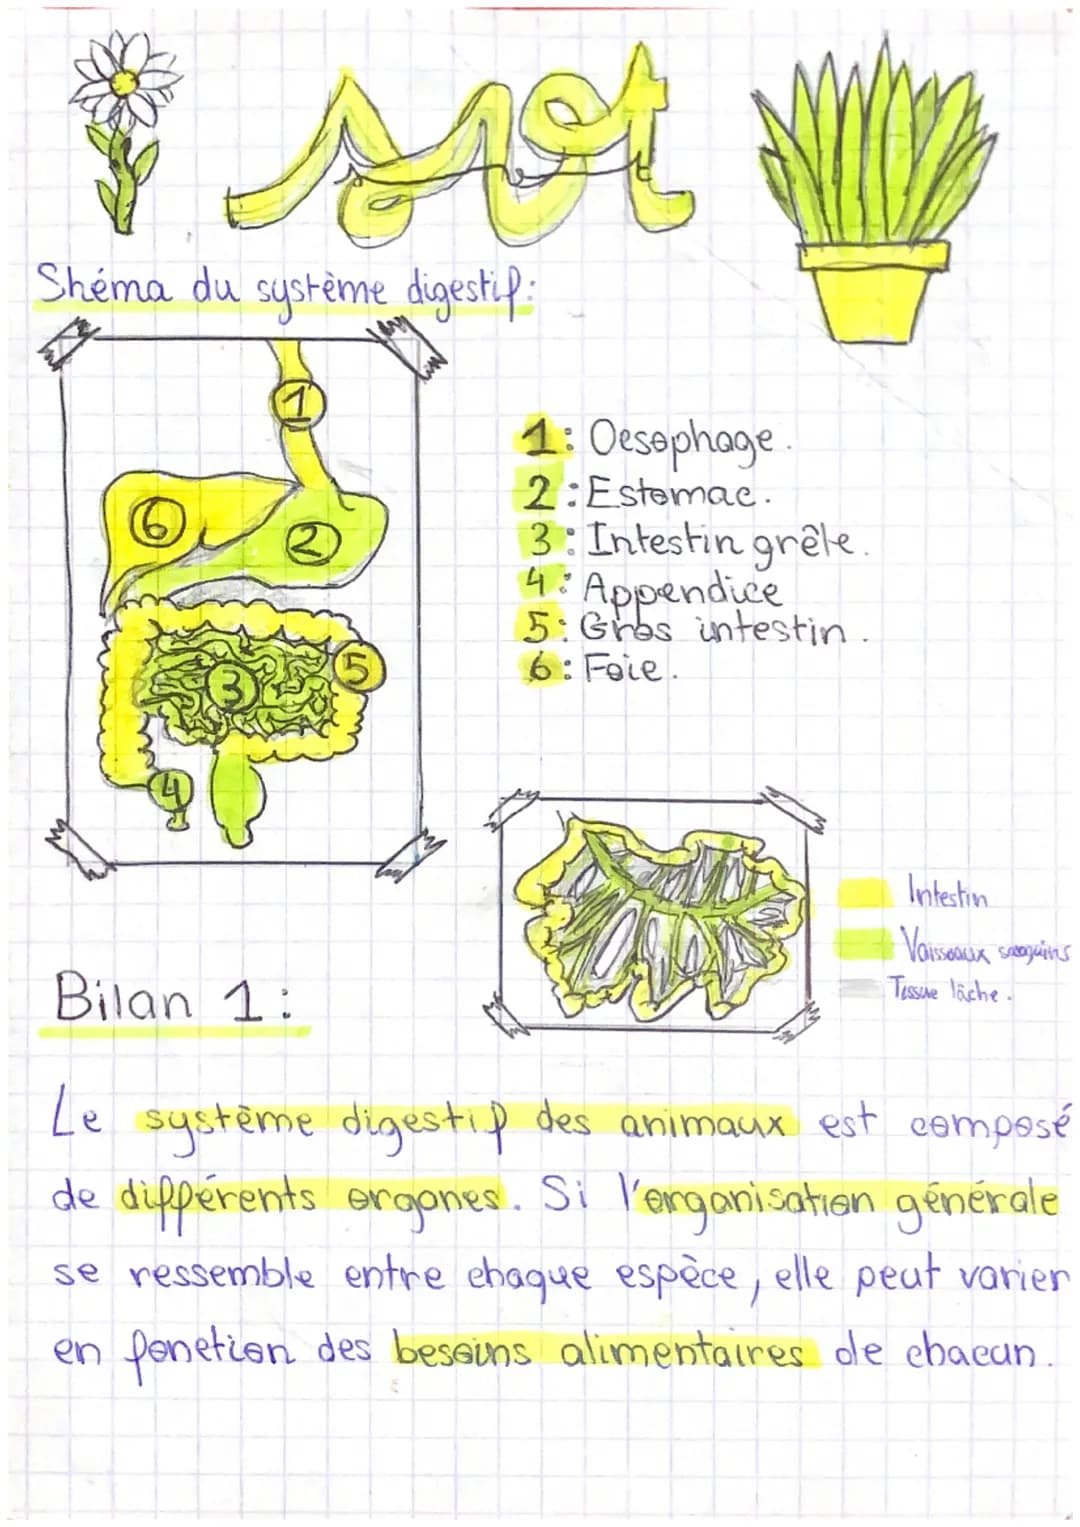 svt
Shéma du système digestif:
1
6
2
5
3
4
1: Oesophage.
2: Estomac.
3: Intestin grêle.
4: Appendice
5: Gros intestin.
6: Foie.
Intestin
Vaisseaux sanguins
Tissue lâche.
Bilan 1:
Le système digestif des animaux est composé
de différents organes. Si l'organisation générale
se ressemble entre chaque espèce, elle peut varier
en fonction des besoins alimentaires de chacun.